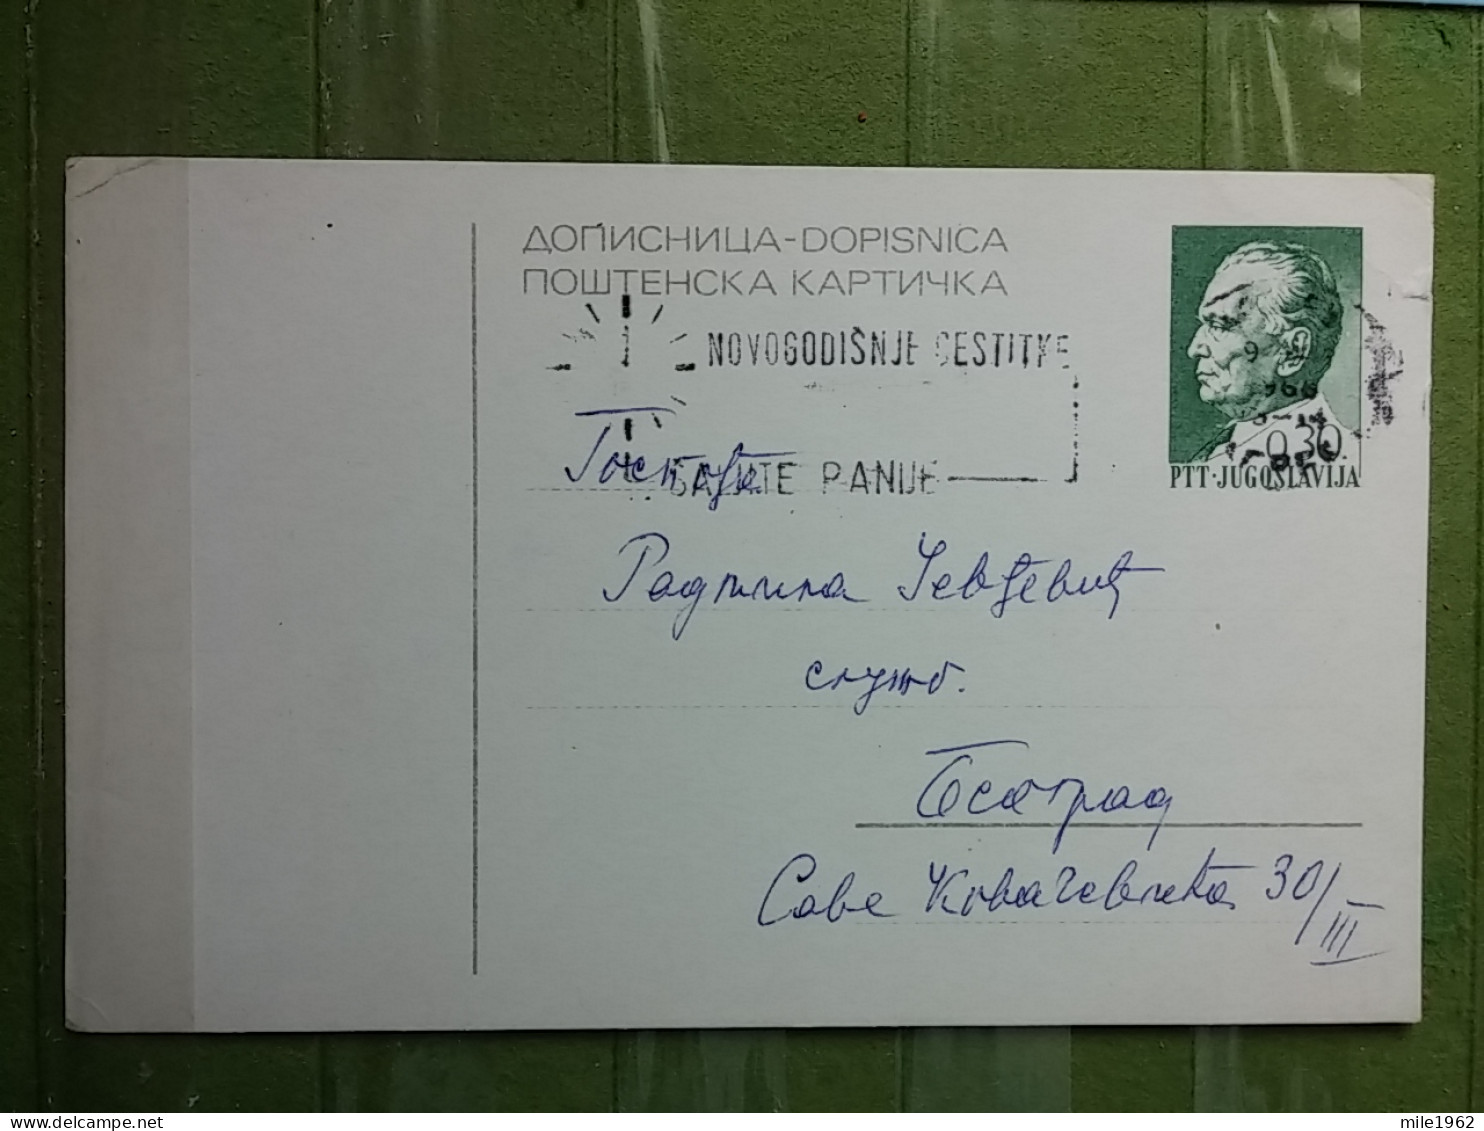 ДОПИСНИЦА-DOPISNICA
ПОШТЕНСКА КАРТИЧКА
NOVOGODIŠNJE ČESTITKE
ŠALJITE RANIJE
0,30
PTT·JUGOSLAVIJA
Госпођа
Радмила Јевђевић
служб.
Београд
Саве Ковачевића 30/III
mile1962